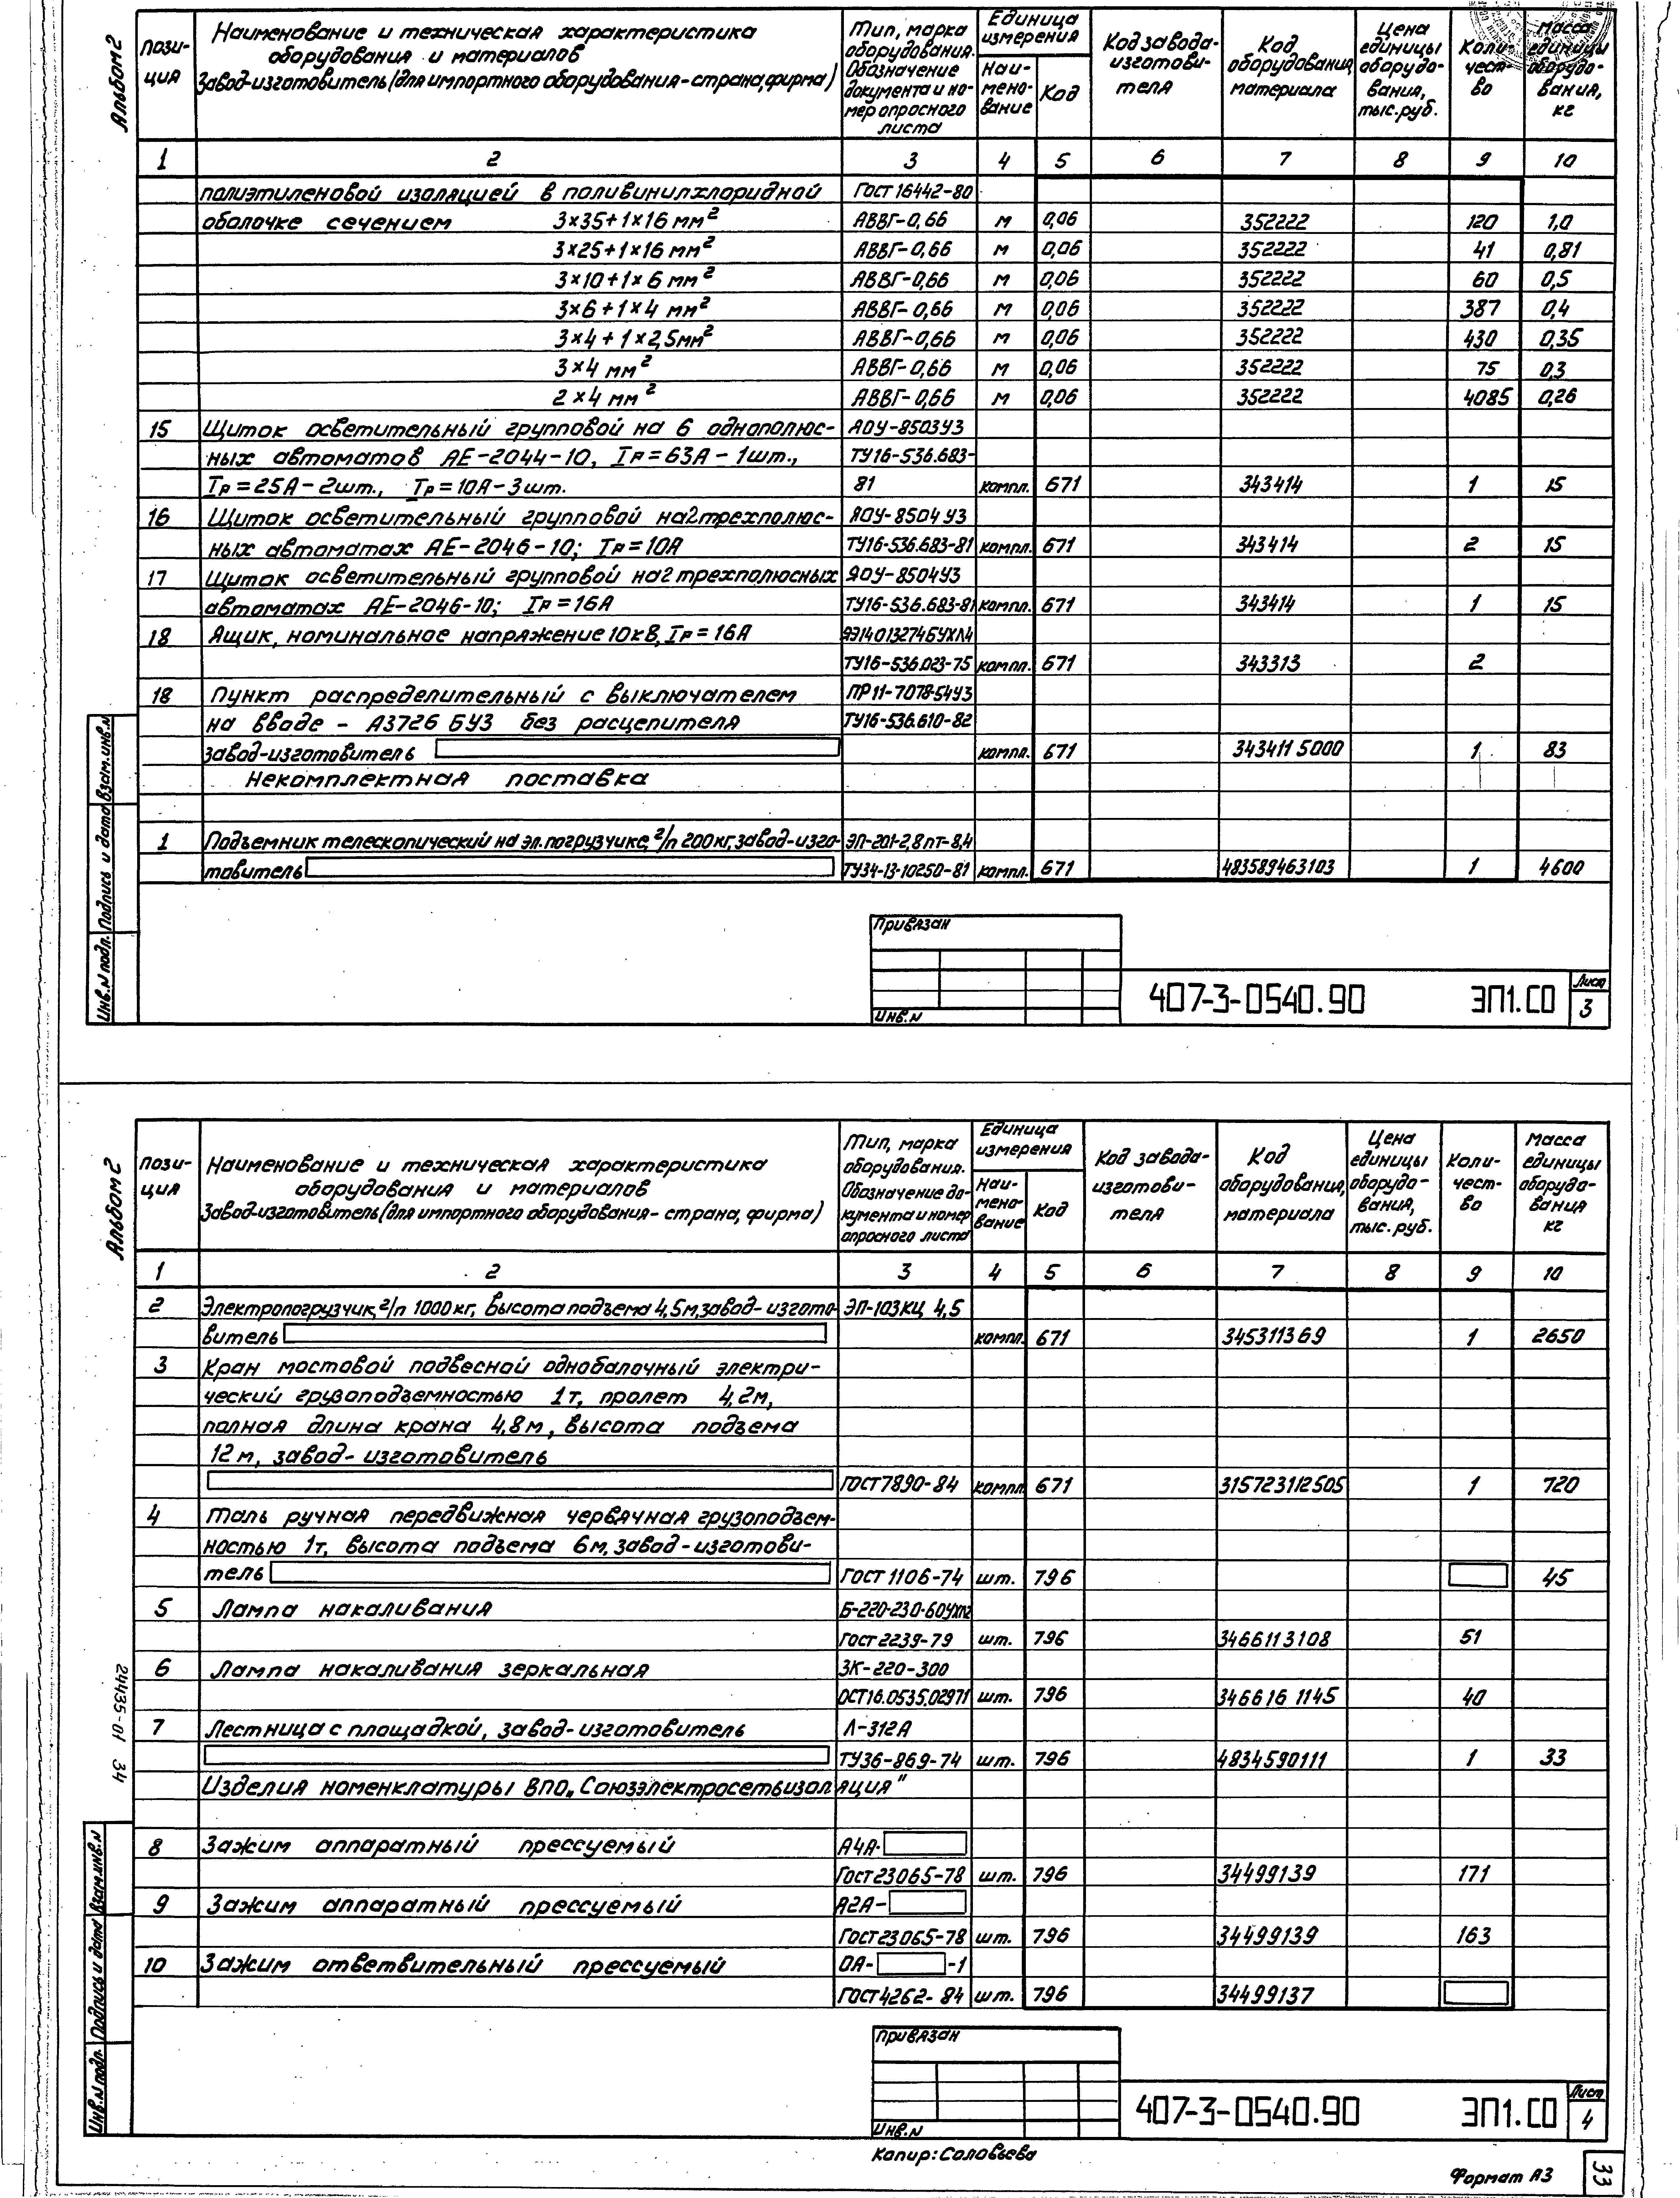 Альбом 2
Пози-
ция
Наименование и техническая характеристика
оборудования и материалов
Завод-изготовитель (для импортного оборудования - страна, фирма)
Тип, марка
оборудования.
Обозначение
документа и но-
мер опросного
листа
Единица
измерения
Наи-
мено-
вание
Код
Код завода-
изготови-
теля
Код
оборудования,
материала
Цена
единицы
оборудо-
вания,
тыс.руб.
Коли-
чест-
во
Масса
единицы
оборудо-
вания,
кг
1 2 3 4 5 6 7 8 9 10
полиэтиленовой изоляцией в поливинилхлоридной ГОСТ 16442-80
оболочке сечением 3×35+1×16 мм² АВВГ-0,66 м 0,06 352222 120 1,0
3×25+1×16 мм² АВВГ-0,66 м 0,06 352222 41 0,81
3×10+1×6 мм² АВВГ-0,66 м 0,06 352222 60 0,5
3×6+1×4 мм² АВВГ-0,66 м 0,06 352222 387 0,4
3×4+1×2,5мм² АВВГ-0,66 м 0,06 352222 430 0,35
3×4 мм² АВВГ-0,66 м 0,06 352222 75 0,3
2×4 мм² АВВГ-0,66 м 0,06 352222 4085 0,26
15 Щиток осветительный групповой на 6 однополюс- ЯОУ-8503У3
ных автоматов АЕ-2044-10, Iр=63А-1шт., ТУ16-536.683-
Iр=25А-2шт., Iр=10А-3шт. 81 компл. 671 343414 1 15
16 Щиток осветительный групповой на 2 трехполюс- ЯОУ-8504У3
ных автоматах АЕ-2046-10; Iр=10А ТУ16-536.683-81 компл. 671 343414 2 15
17 Щиток осветительный групповой на 2 трехполюсных ЯОУ-8504У3
автоматах АЕ-2046-10; Iр=16А ТУ16-536.683-81 компл. 671 343414 1 15
18 Ящик, номинальное напряжение 10кВ, Iр=16А
ТУ16-536.023-75 компл. 671 343313 2
18 Пункт распределительный с выключателем ПР11-7078-54У3
на вводе - А3726 БУЗ без расцепителя ТУ16-536.610-82
завод-изготовитель компл. 671 343411 5000 1 83
Некомплектная поставка
1 Подъемник телескопический на эл.погрузчике, г/п 200кг, завод-изго- ЭП-201-2,8 пт-8,4
товитель ТУ34-13-10250-81 компл. 671 483589463103 1 4600
Инв.N подл. Подпись и дата Взам.инв.N
Привязан
Инв.N
407-3-0540.90 ЭП1.СО
Лист
3
Альбом 2
Пози-
ция
Наименование и техническая характеристика
оборудования и материалов
Завод-изготовитель (для импортного оборудования - страна, фирма)
Тип, марка
оборудования.
Обозначение до-
кумента и номер
опросного листа
Единица
измерения
Наи-
мено-
вание
Код
Код завода-
изготови-
теля
Код
оборудования,
материала
Цена
единицы
оборудо-
вания,
тыс.руб.
Коли-
чест-
во
Масса
единицы
оборудо-
вания
кг
1 2 3 4 5 6 7 8 9 10
2 Электропогрузчик, г/п 1000кг, высота подъема 4,5м, завод-изгото- ЭП-103КЦ 4,5
витель компл. 671 345311369 1 2650
3 Кран мостовой подвесной однобалочный электри-
ческий грузоподъемностью 1т, пролет 4,2м,
полная длина крана 4,8м, высота подъема
12 м, завод-изготовитель
ГОСТ 7890-84 компл. 671 315723112505 1 720
4 Таль ручная передвижная червячная грузоподъем-
ностью 1т, высота подъема 6м, завод-изготови-
тель ГОСТ 1106-74 шт. 796 45
5 Лампа накаливания Б-220-230-60УХЛ2
ГОСТ 2239-79 шт. 796 3466113108 51
6 Лампа накаливания зеркальная ЗК-220-300
ОСТ16.0535.02971 шт. 796 346616 1145 40
7 Лестница с площадкой, завод-изготовитель Л-312А
ТУ36-869-74 шт. 796 4834590111 1 33
Изделия номенклатуры ВПО „Союзэлектросетьизоляция"
8 Зажим аппаратный прессуемый А4А-
ГОСТ 23065-78 шт. 796 34499139 171
9 Зажим аппаратный прессуемый А2А-
ГОСТ 23065-78 шт. 796 34499139 163
10 Зажим ответвительный прессуемый ОА- -1
ГОСТ 4262-84 шт. 796 34499137
24435-01 34
Инв.N подл. Подпись и дата Взам.инв.N
Привязан
Инв.N
407-3-0540.90 ЭП1.СО
Лист
4
Копир: Соловьева
Формат А3
33